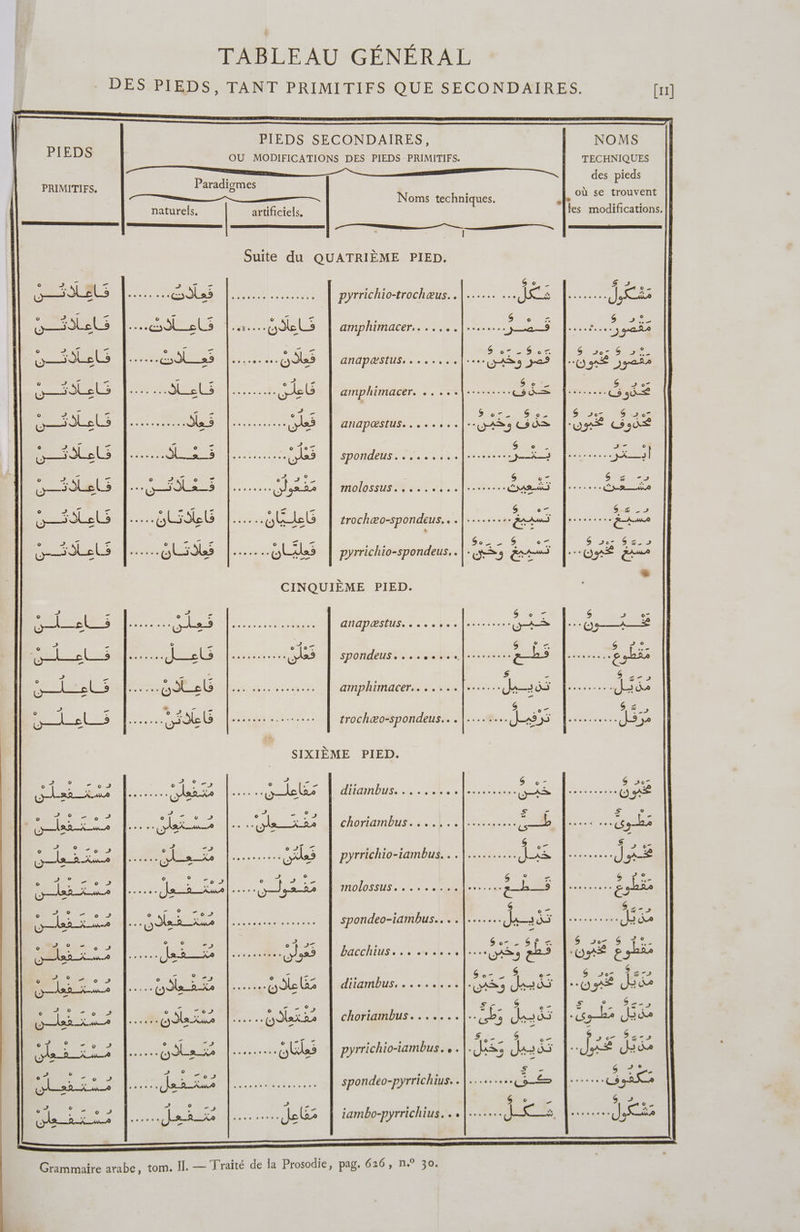 TABLEAU GÉNÉRAL
DES PIEDS, TANT PRIMITIFS QUE SECONDAIRES. [11]
PIEDS PRIMITIFS.
PIEDS SECONDAIRES,
OU MODIFICATIONS DES PIEDS PRIMITIFS.
Paradigmes
naturels. artificiels.
Noms techniques.
NOMS
TECHNIQUES
des pieds
où se trouvent
les modifications.
Suite du QUATRIÈME PIED.
فَاعِلَاتُنْ فَعِلَاتُ pyrrichio-trochæus.. شَكْلٌ مَشْكُولٌ
فَاعِلَاتُنْ فَاعِلَاتْ فَاعِلَانْ amphimacer....... قَصْرٌ مَقْصُورٌ
فَاعِلَاتُنْ فَعِلَاتْ فَعِلَانْ anapæstus........ قَصْرٌ وَخَبْنٌ مَقْصُورٌ مَخْبُونٌ
فَاعِلَاتُنْ فَاعِلَا فَاعِلُنْ amphimacer. ..... حَذْفٌ مَحْذُوفٌ
فَاعِلَاتُنْ فَعِلَا فَعِلُنْ anapæstus........ حَذْفٌ وَخَبْنٌ مَحْذُوفٌ مَخْبُونٌ
فَاعِلَاتُنْ فَعْلَا فَعْلُنْ spondeus......... بَتْرٌ أَبْتَرُ
فَاعِلَاتُنْ فَعْلَاتُنْ مَفْعُولُنْ molossus......... تَشْعِيثٌ مُشَعَّثٌ
فَاعِلَاتُنْ فَاعِلَاتَانْ فَاعِلِيَّانْ trochæo-spondeus... تَسْبِيغٌ مُسَبَّغٌ
فَاعِلَاتُنْ فَعِلَاتَانْ فَعِلِيَّانْ pyrrichio-spondeus.. تَسْبِيغٌ وَخَبْنٌ مُسَبَّغٌ مَخْبُونٌ
CINQUIÈME PIED.
فَاعِلُنْ فَعِلُنْ anapæstus........ خَبْنٌ مَخْبُونٌ
فَاعِلُنْ فَاعِلْ فَعْلُنْ spondeus......... قَطْعٌ مَقْطُوعٌ
فَاعِلُنْ فَاعِلَانْ amphimacer....... تَذْيِيلٌ مُذَيَّلٌ
فَاعِلُنْ فَاعِلَاتُنْ trochæo-spondeus... تَرْفِيلٌ مُرَفَّلٌ
SIXIÈME PIED.
مُسْتَفْعِلُنْ مُتَفْعِلُنْ مَفَاعِلُنْ diïambus......... خَبْنٌ مَخْبُونٌ
مُسْتَفْعِلُنْ مُسْتَعِلُنْ مُفْتَعِلُنْ choriambus....... طَىٌّ مَطْوِىٌّ
مُسْتَفْعِلُنْ مُتَعِلُنْ فَعِلَتُنْ pyrrichio-iambus... خَبْلٌ مَخْبُولٌ
مُسْتَفْعِلُنْ مُسْتَفْعِلْ مَفْعُولُنْ molossus......... قَطْعٌ مَقْطُوعٌ
مُسْتَفْعِلُنْ مُسْتَفْعِلَانْ spondeo-iambus.... تَذْيِيلٌ مُذَيَّلٌ
مُسْتَفْعِلُنْ مُتَفْعِلْ فَعُولُنْ bacchius......... قَطْعٌ وَخَبْنٌ مَقْطُوعٌ مَخْبُونٌ
مُسْتَفْعِلُنْ مُتَفْعِلَانْ مَفَاعِلَانْ diïambus......... تَذْيِيلٌ وَخَبْنٌ مُذَيَّلٌ مَخْبُونٌ
مُسْتَفْعِلُنْ مُسْتَعِلَانْ مُفْتَعِلَانْ choriambus....... تَذْيِيلٌ وَطَىٌّ مُذَيَّلٌ مَطْوِىٌّ
مُسْتَفْعِلُنْ مُتَعِلَانْ فَعِلَتَانْ pyrrichio-iambus... تَذْيِيلٌ وَخَبْلٌ مُذَيَّلٌ مَخْبُولٌ
مُسْتَفْعِلُنْ مُسْتَفْعِلُ spondeo-pyrrichius.. كَفٌّ مَكْفُوفٌ
مُسْتَفْعِلُنْ مُتَفْعِلُ مَفَاعِلُ iambo-pyrrichius... شَكْلٌ مَشْكُولٌ
Grammaire arabe, tom. II. — Traité de la Prosodie, pag. 626, n.º 30.